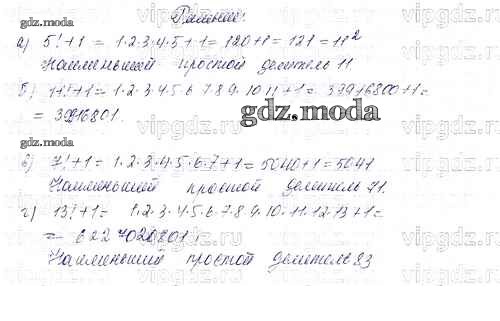 gdz.moda
Решение:
а) 5! + 1 = 1·2·3·4·5 + 1 = 120 + 1 = 121 = 11²
Наименьший простой делитель 11
б) 11! + 1 = 1·2·3·4·5·6·7·8·9·10·11 + 1 = 39916800 + 1 =
= 39916801.
gdz.moda
в) 7! + 1 = 1·2·3·4·5·6·7 + 1 = 5040 + 1 = 5041
Наименьший простой делитель 71.
г) 13! + 1 = 1·2·3·4·5·6·7·8·9·10·11·12·13 + 1 =
= 6227020801
Наименьший простой делитель 83
gdz.moda
vipgdz.ru